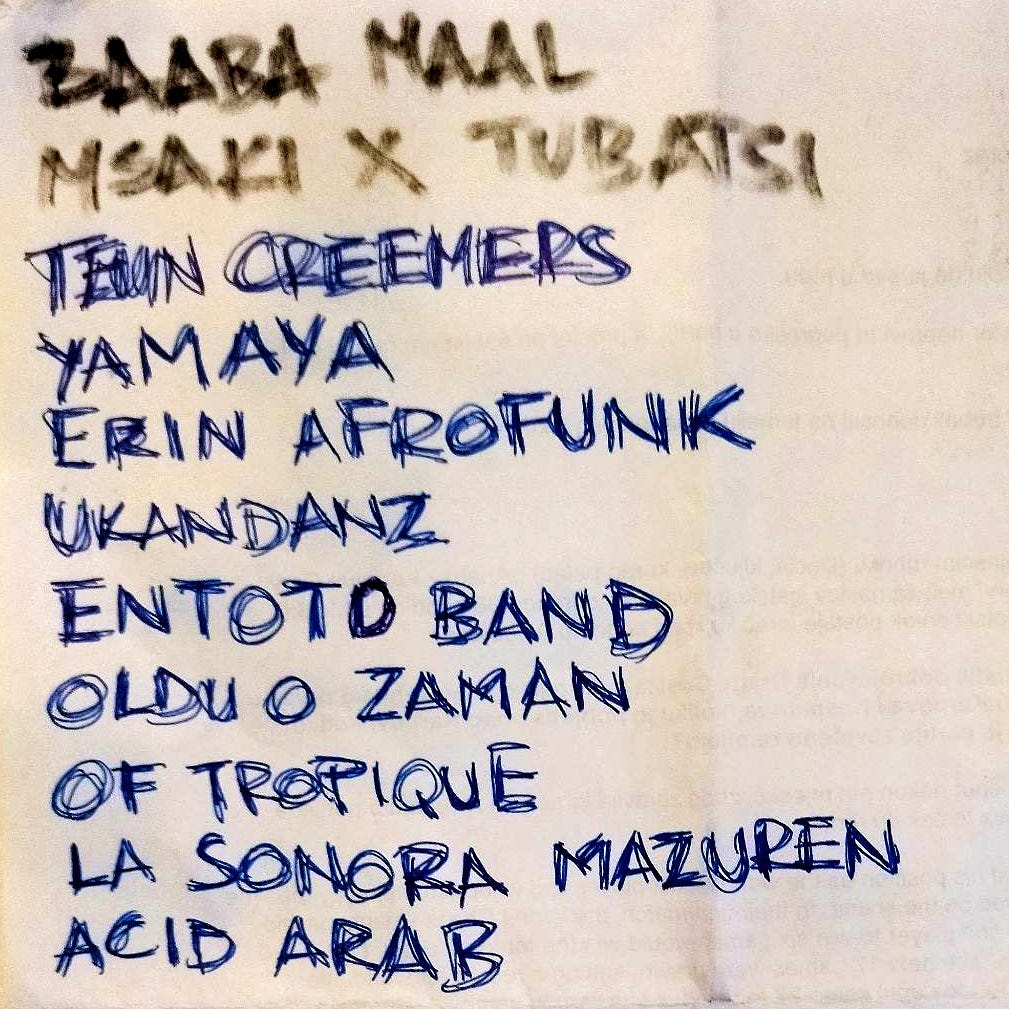 BAABA MAAL
MSAKI X TUBATSI
TEUN CREEMERS
YAMAYA
ERIN AFROFUNK
UKANDANZ
ENTOTO BAND
OLDU O ZAMAN
OF TROPIQUE
LA SONORA MAZUREN
ACID ARAB